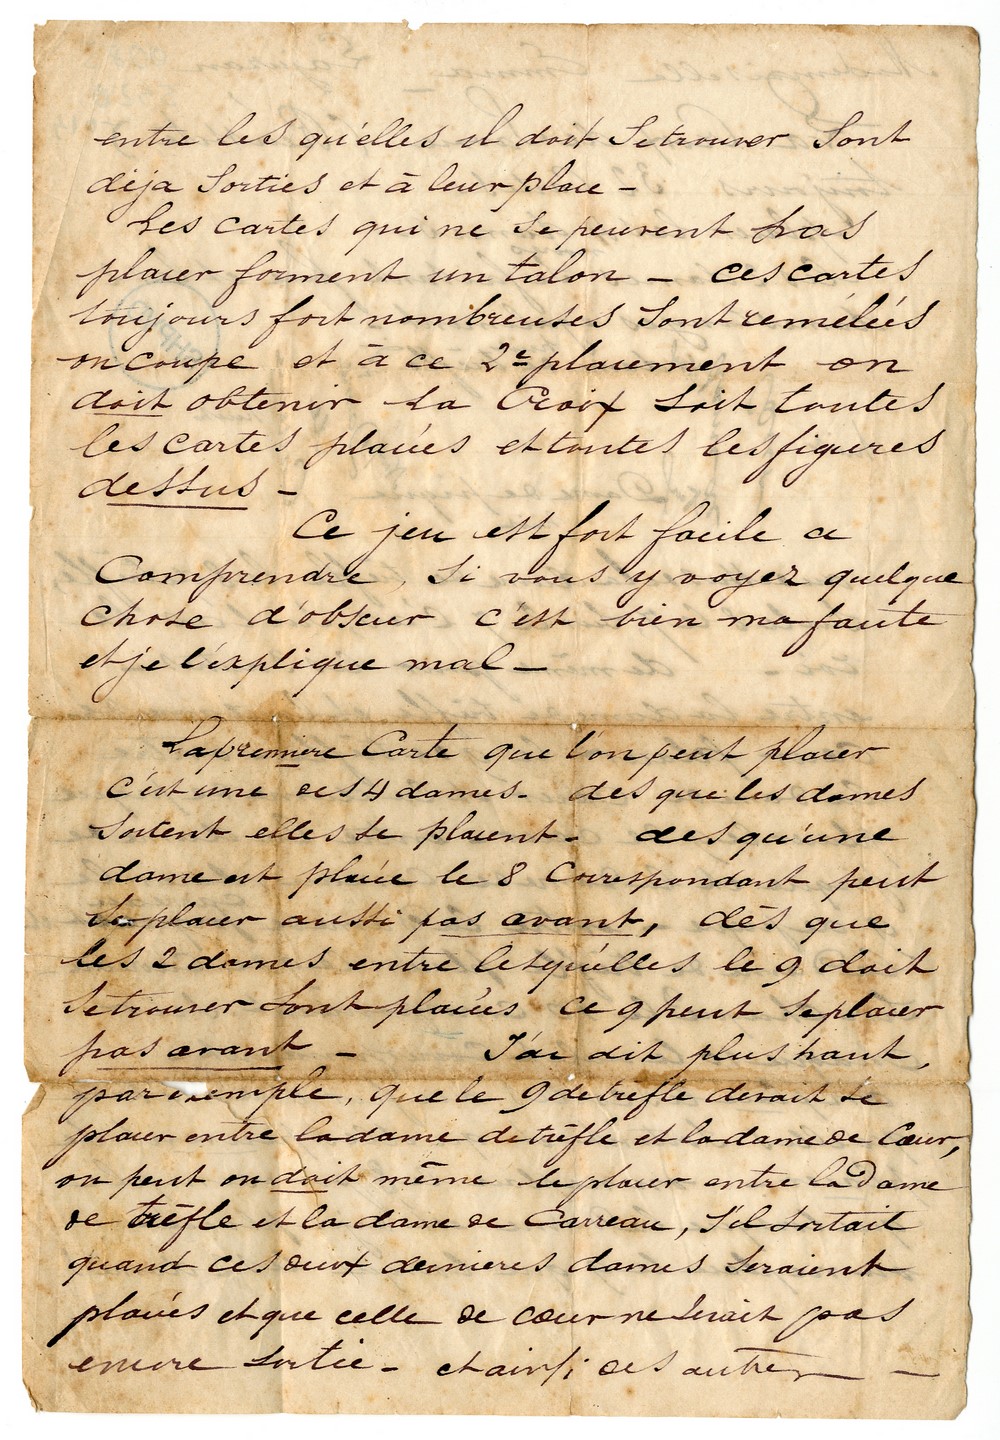 entre les qu'elles il doit se trouver sont
déja sorties et à leur place -
Les cartes qui ne se peuvent pas
placer forment un talon - ces cartes
toujours fort nombreuses sont remêlées
on coupe et à ce 2e placement on
doit obtenir la Croix soit toutes
les cartes placées et toutes les figures
dessus -
Ce jeu est fort facile a
Comprendre, si vous y voyez quelque
chose d'obscur c'est bien ma faute
et je l'explique mal -
La premiere Carte que l'on peut placer
c'est une des 4 dames - des que les dames
sortent elles se placent - des qu'une
dame est placée le 8 Correspondant peut
se placer aussi pas avant, dès que
les 2 dames entre lesqu'elles le 9 doit
se trouver sont placées ce 9 peut se placer
pas avant - J'ai dit plus haut,
par exemple, que le 9 de trèfle devait se
placer entre la dame de trèfle et la dame de Cœur,
on peut on doit même le placer entre la Dame
de trèfle et la dame de Carreau, s'il sortait
quand ces deux dernieres dames seraient
placées et que celle de cœur ne serait pas
encore sortie - et ainsi des autres -